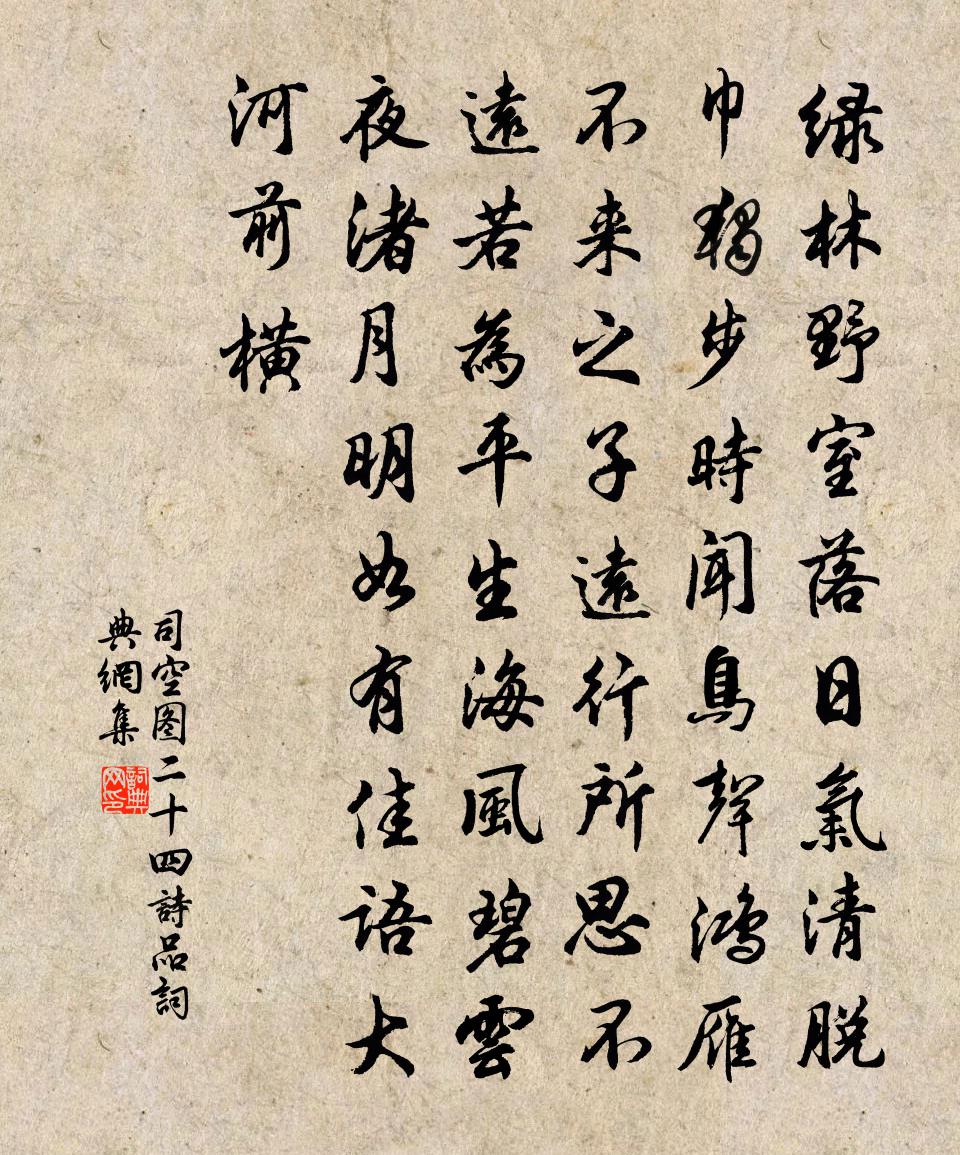 绿林野室落日氣清脱
巾獨步時聞鳥聲鴻雁
不来之子遠行所思不
遠若為平生海風碧雲
夜渚月明如有佳語大
河前橫
司空图二十四詩品詞
典網集
詞典网印